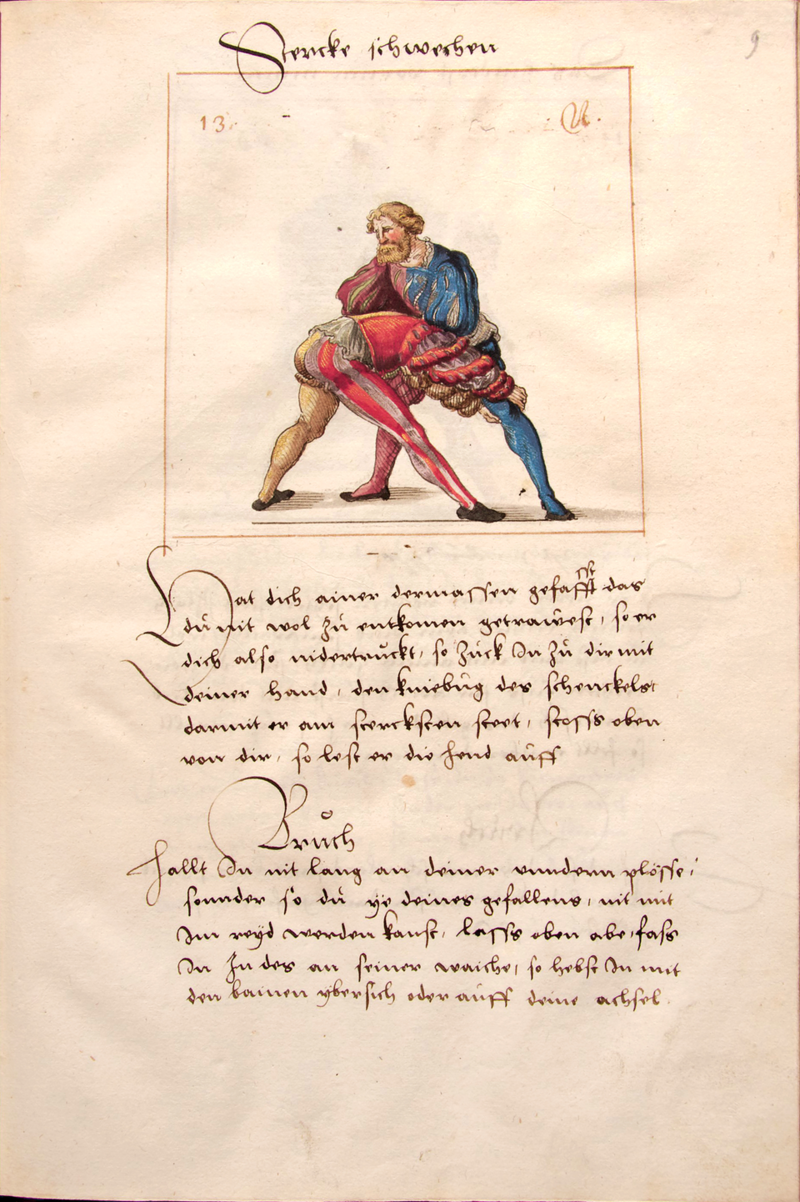 Stercke schwechen
9
13.
Hat dich ainer dermassen gefasst das
du nit wol zu entkomen getrawest, so er
dich also nidertruckt, so zuck In zu dir mit
deiner hand, den kniebug des schenckels
darmit er am stercksten steet, stosss oben
von dir, so lest er die hend auff
Bruch
Hallt In nit lang an deiner unndern plösse,
sonnder so du ye deines gefallens, nit mit
Im reyd werden kanst, lasss oben abe, fass
In In des an seiner waiche, so hebst In mit
den bainen ybersich oder auff deine achsel